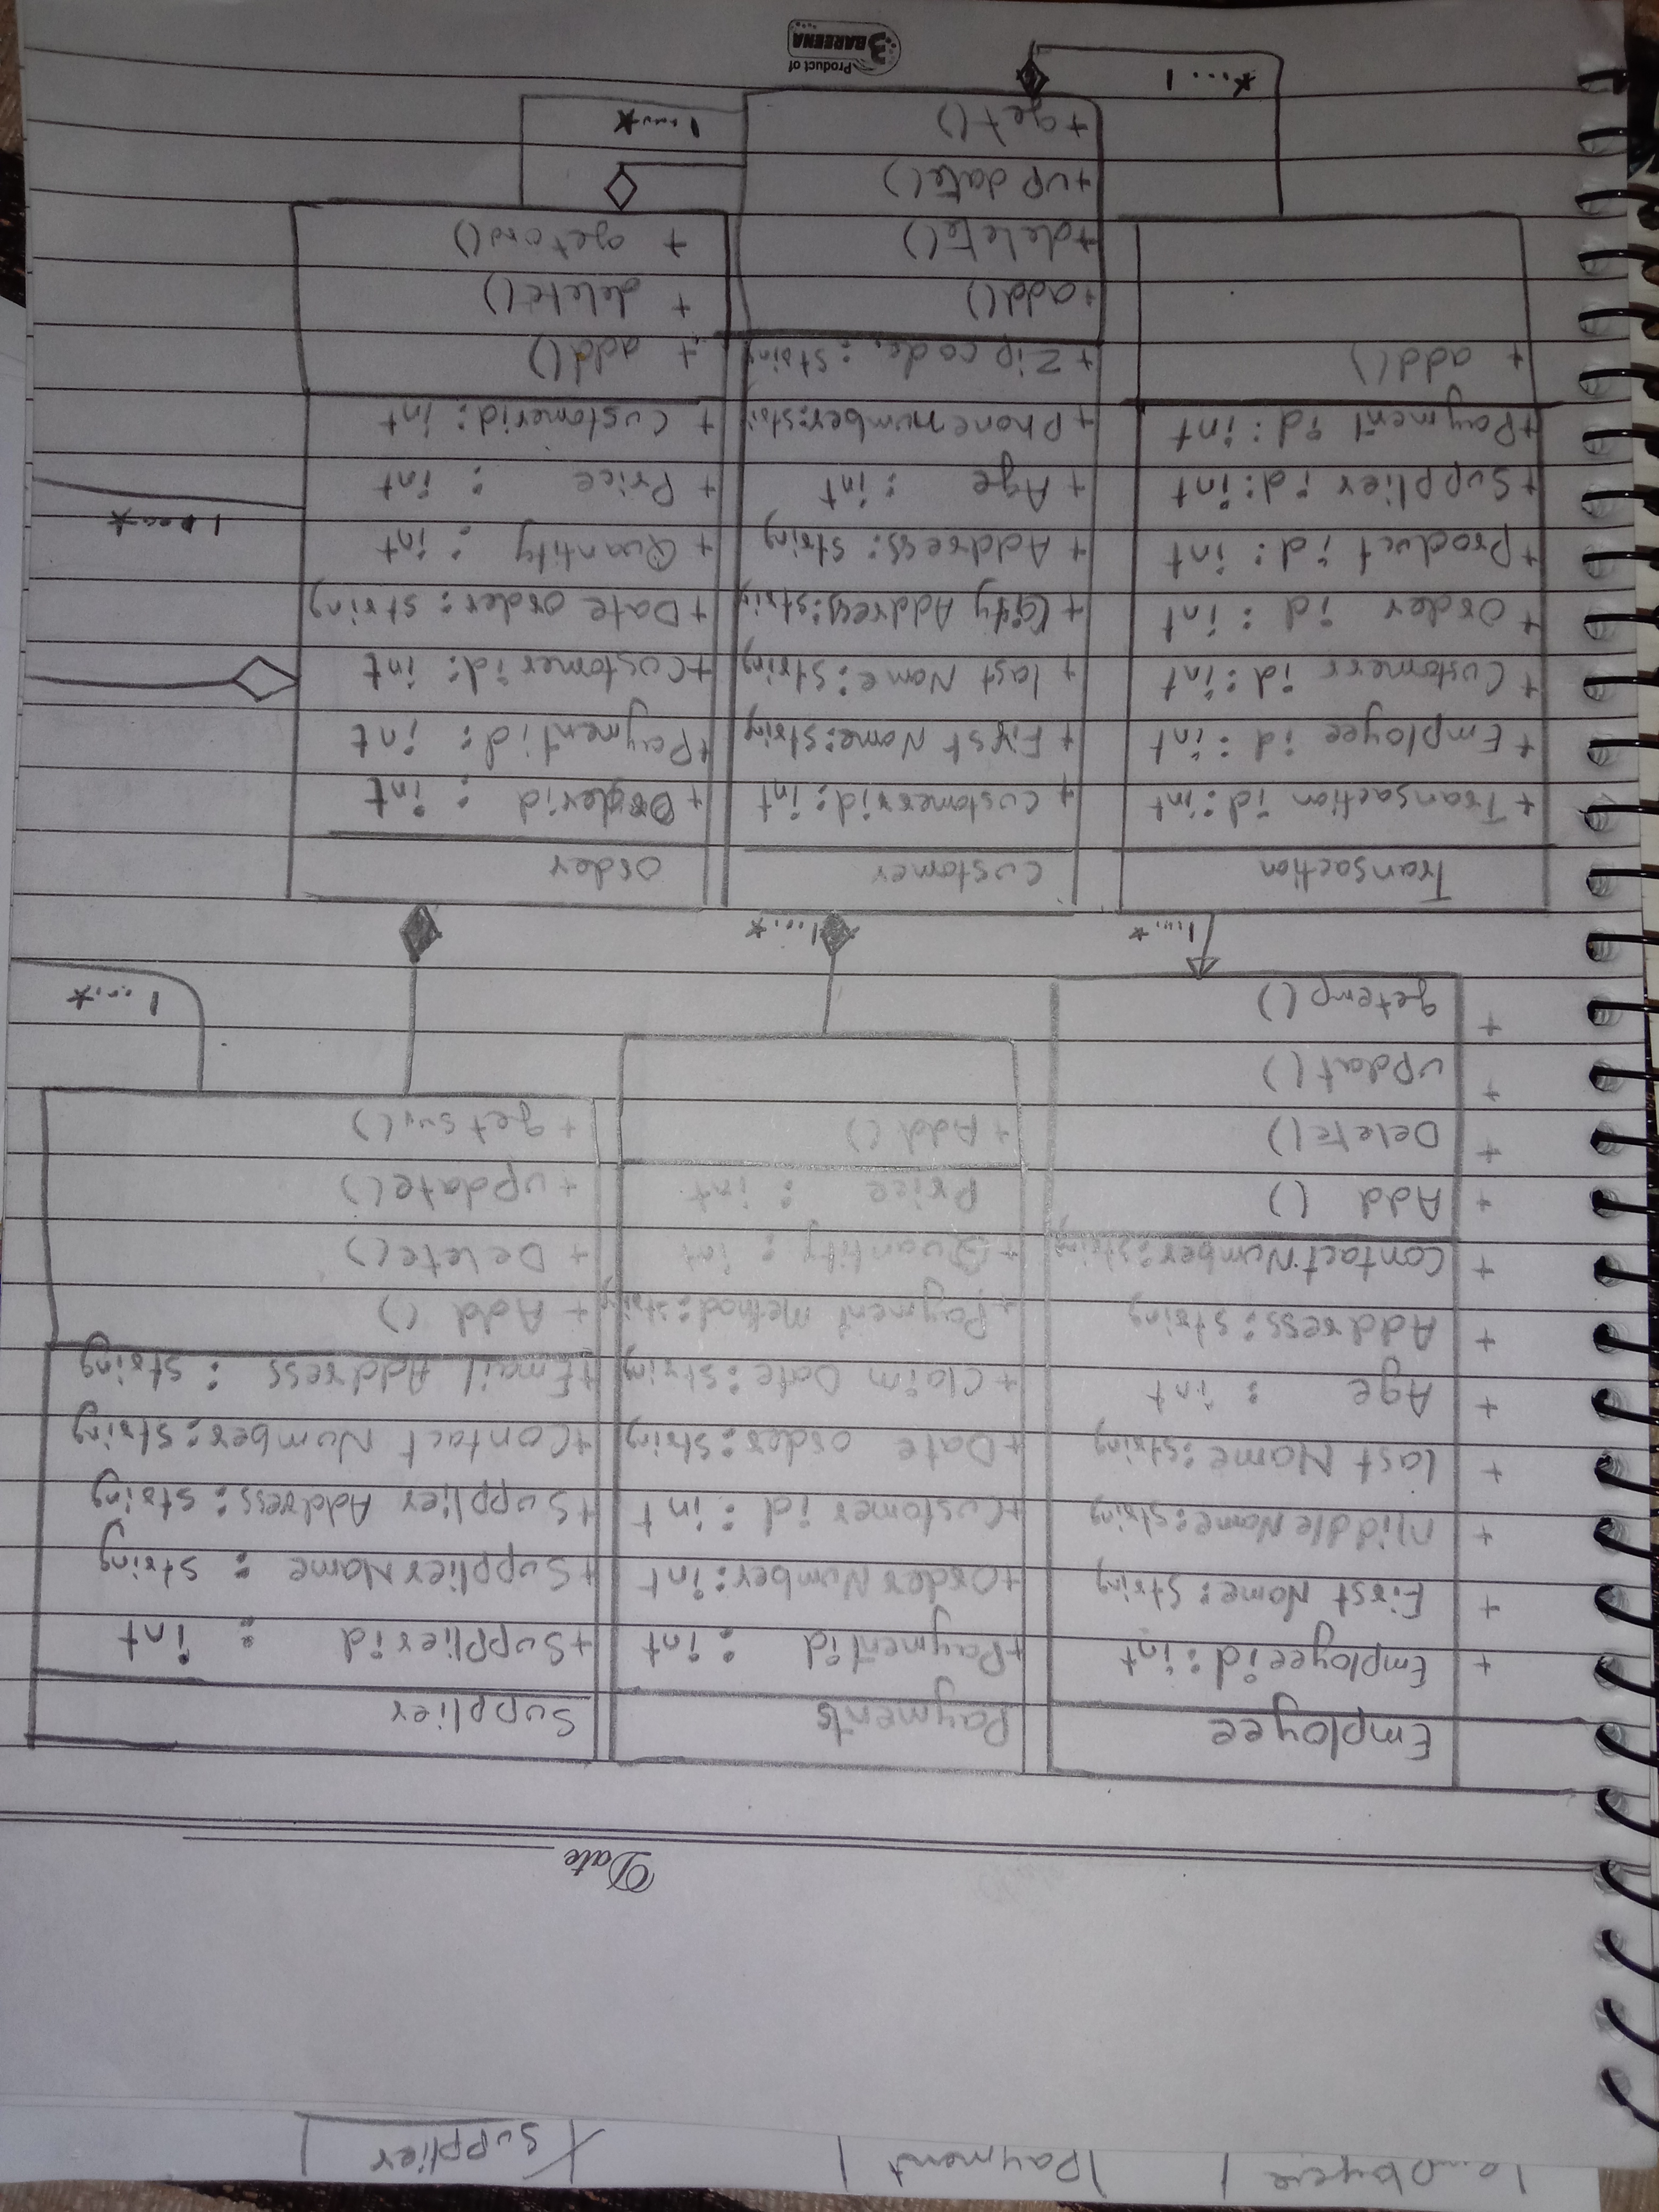 employee
Payment
Supplier
Date
Employee
+ Employee id : int
+ First Name : String
+ Middle Name : string
+ last Name : string
+ Age : int
+ Address : string
+ Contact Number : string
+ Add ()
+ Delete ()
+ updat ()
+ getemp ()
Payments
+ Payment id : int
+ Order Number : int
+ Customer id : int
+ Date order : string
+ Claim Date : string
+ Payment Method : string
+ Quantity : int
Price : int
+ Add ()
Supplier
+ Supplier id : int
+ Supplier Name : string
+ Supplier Address : string
+ Contact Number : string
+ Email Address : string
+ Add ()
+ Delete ()
+ update ()
+ getsup ()
1...*
1....*
1...*
Transaction
+ Transaction id : int
+ Employee id : int
+ Customerr id : int
+ Order id : int
+ Product id : int
+ Supplier id : int
+ Payment id : int
+ add ()
Customer
+ Customerrid : int
+ First Name : string
+ last Name : string
+ City Address : strin
+ Address : string
+ Age : int
+ Phone number : stri
+ Zip code. : string
+ add ()
+ delete ()
+ update ()
+ get ()
order
+ Orderid : int
+ Payment id : int
+ Customer id : int
+ Date order : string
+ Quantity : int
+ Price : int
+ Customerid : int
+ add ()
+ delete ()
+ getord ()
1...*
1....*
*...1
Product of
3 BAREENA